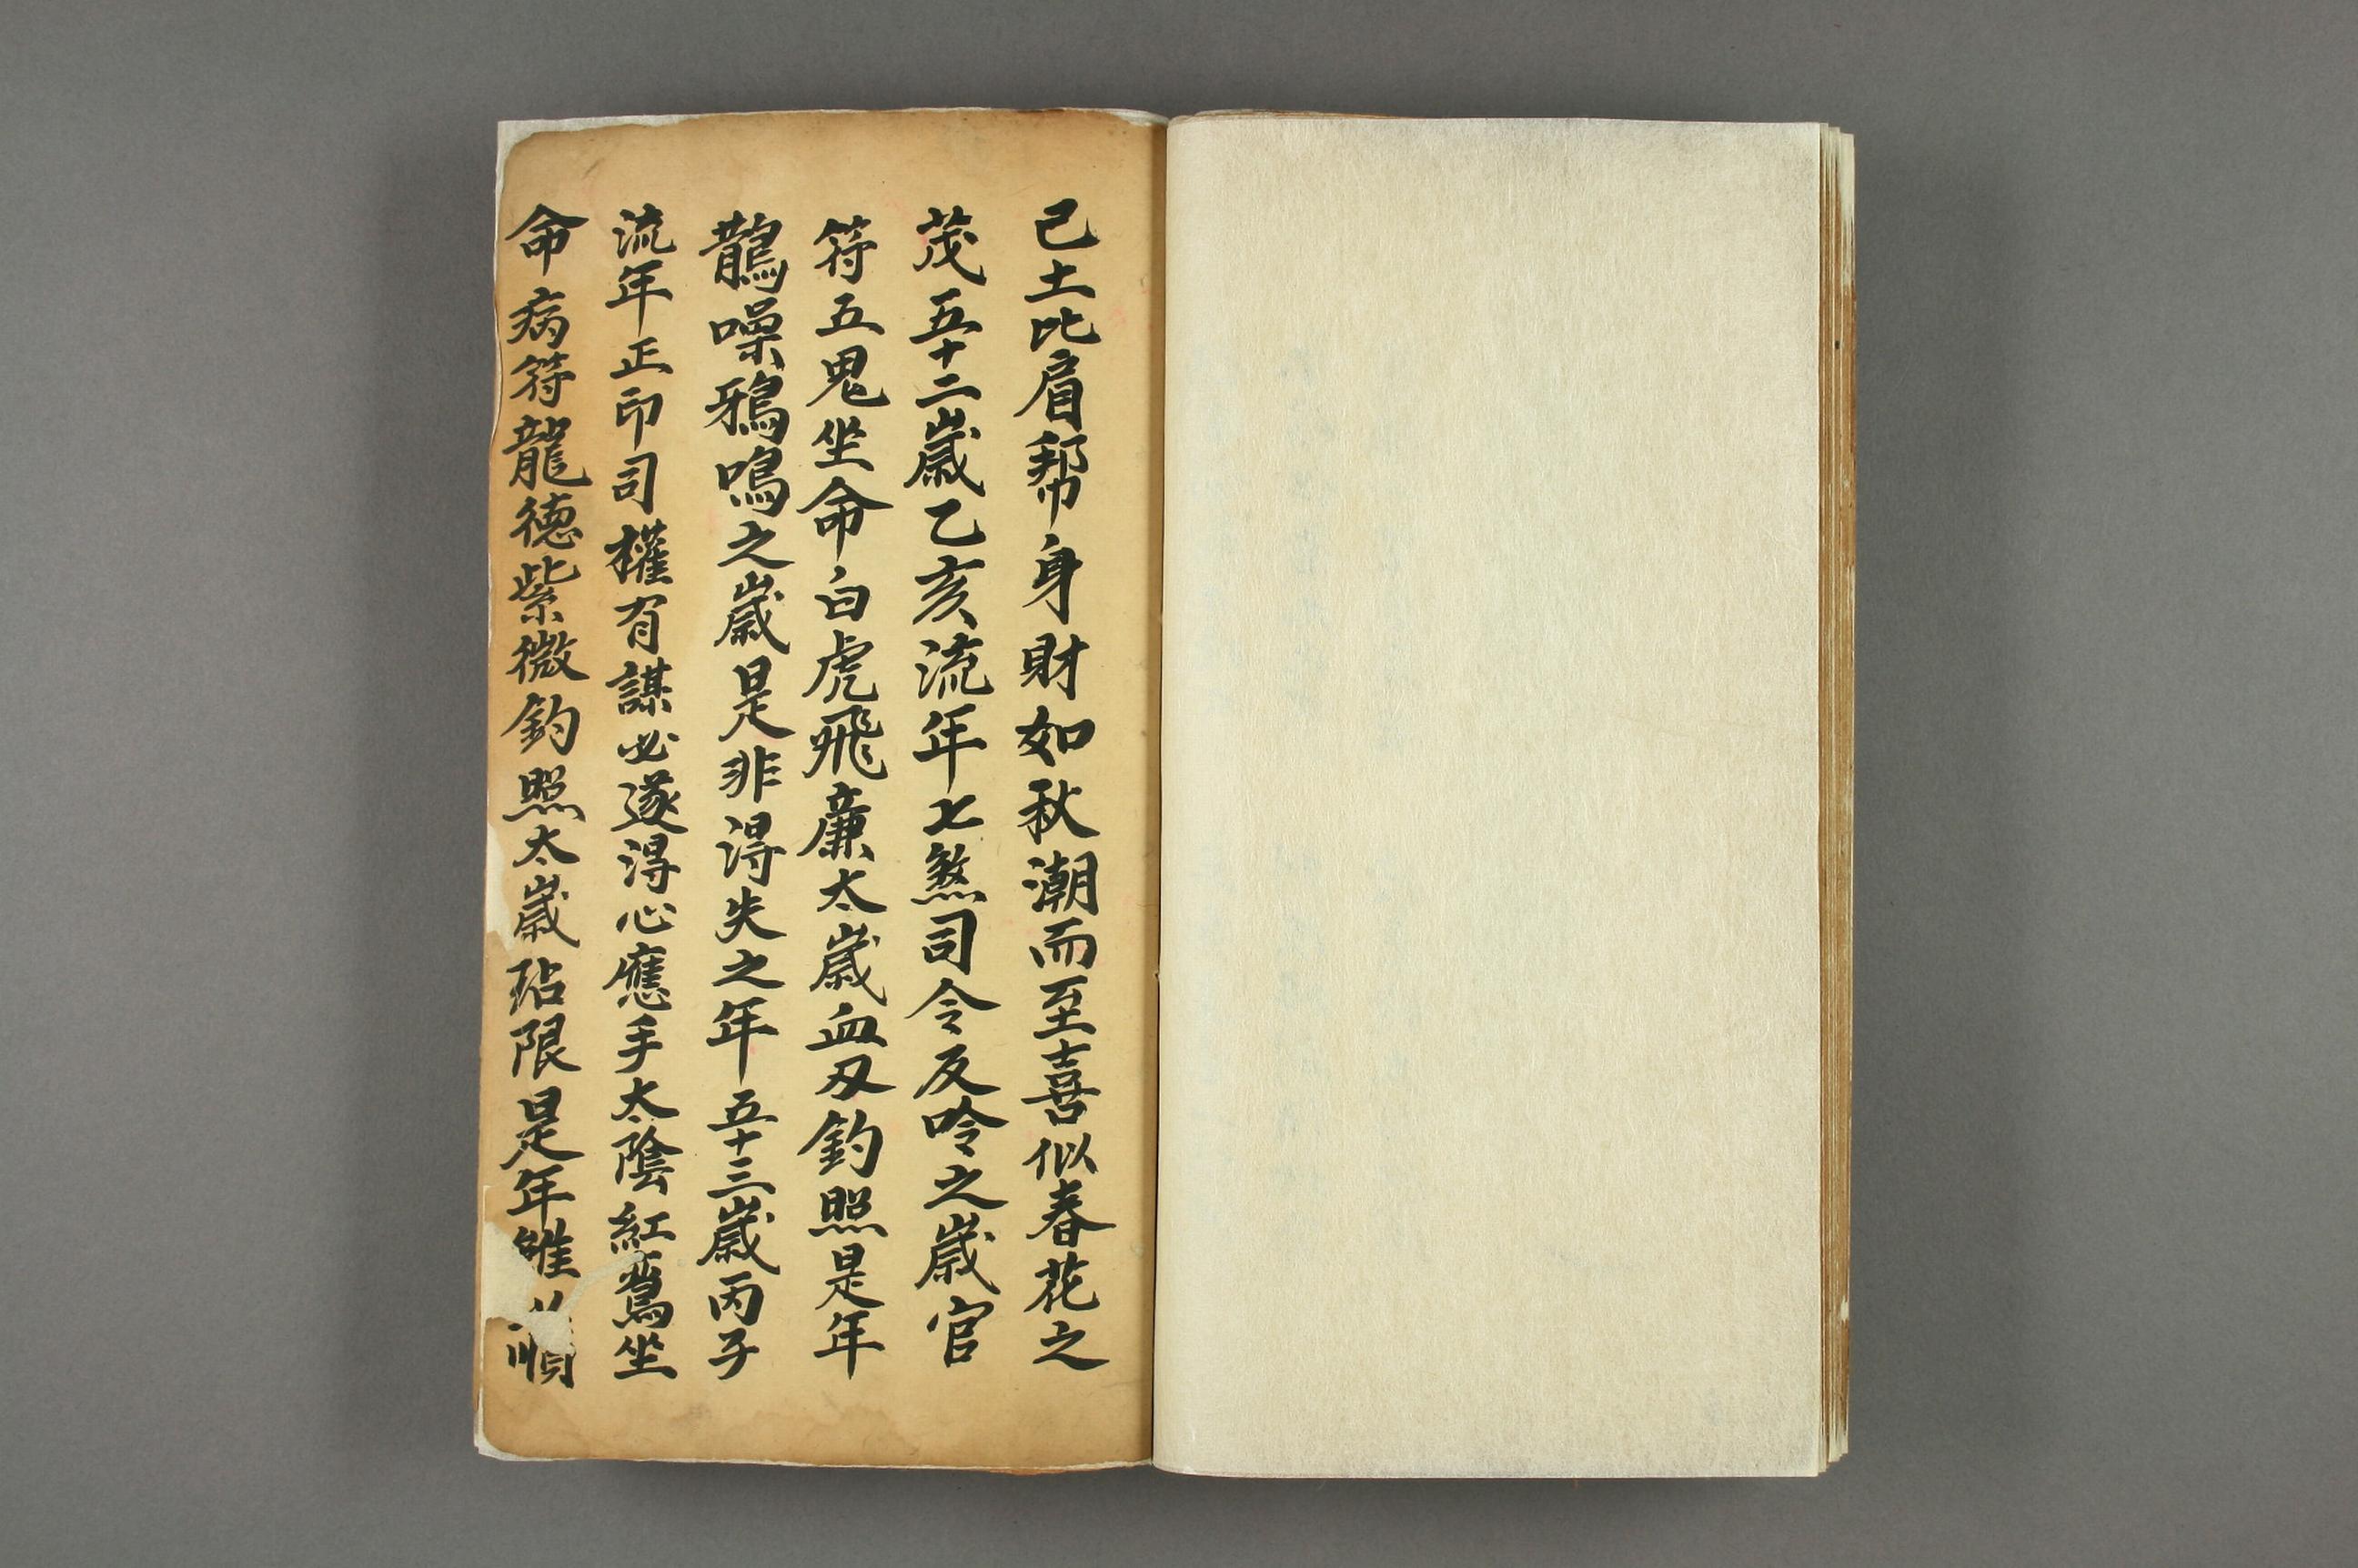 己土比肩幇身財如秋潮而至喜似春花之
茂五十二歲乙亥流年七煞司令反吟之歲官
符五鬼坐命白虎飛廉太歲血刃釣照是年
鵲噪鴉鳴之歲是非得失之年五十三歲丙子
流年正印司權有謀必遂得心應手太陰紅鸞坐
命病符龍德紫微釣照太歲玷限是年雖順